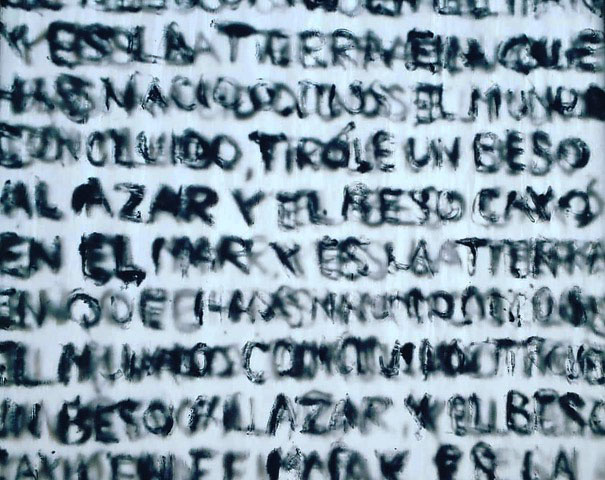 Y ES LA TIERRA EN QUE
HAS NACIDO DIOS EL MUNDO
CONCLUIDO, TIRÓLE UN BESO
AL AZAR Y EL BESO CAYÓ
EN EL MAR Y ES LA TIERRA
EN QUE HAS NACIDO
EL MUNDO CONCLUIDO TIRO
UN BESO AL AZAR, Y EL BESO
EN EL MAR Y ES LA